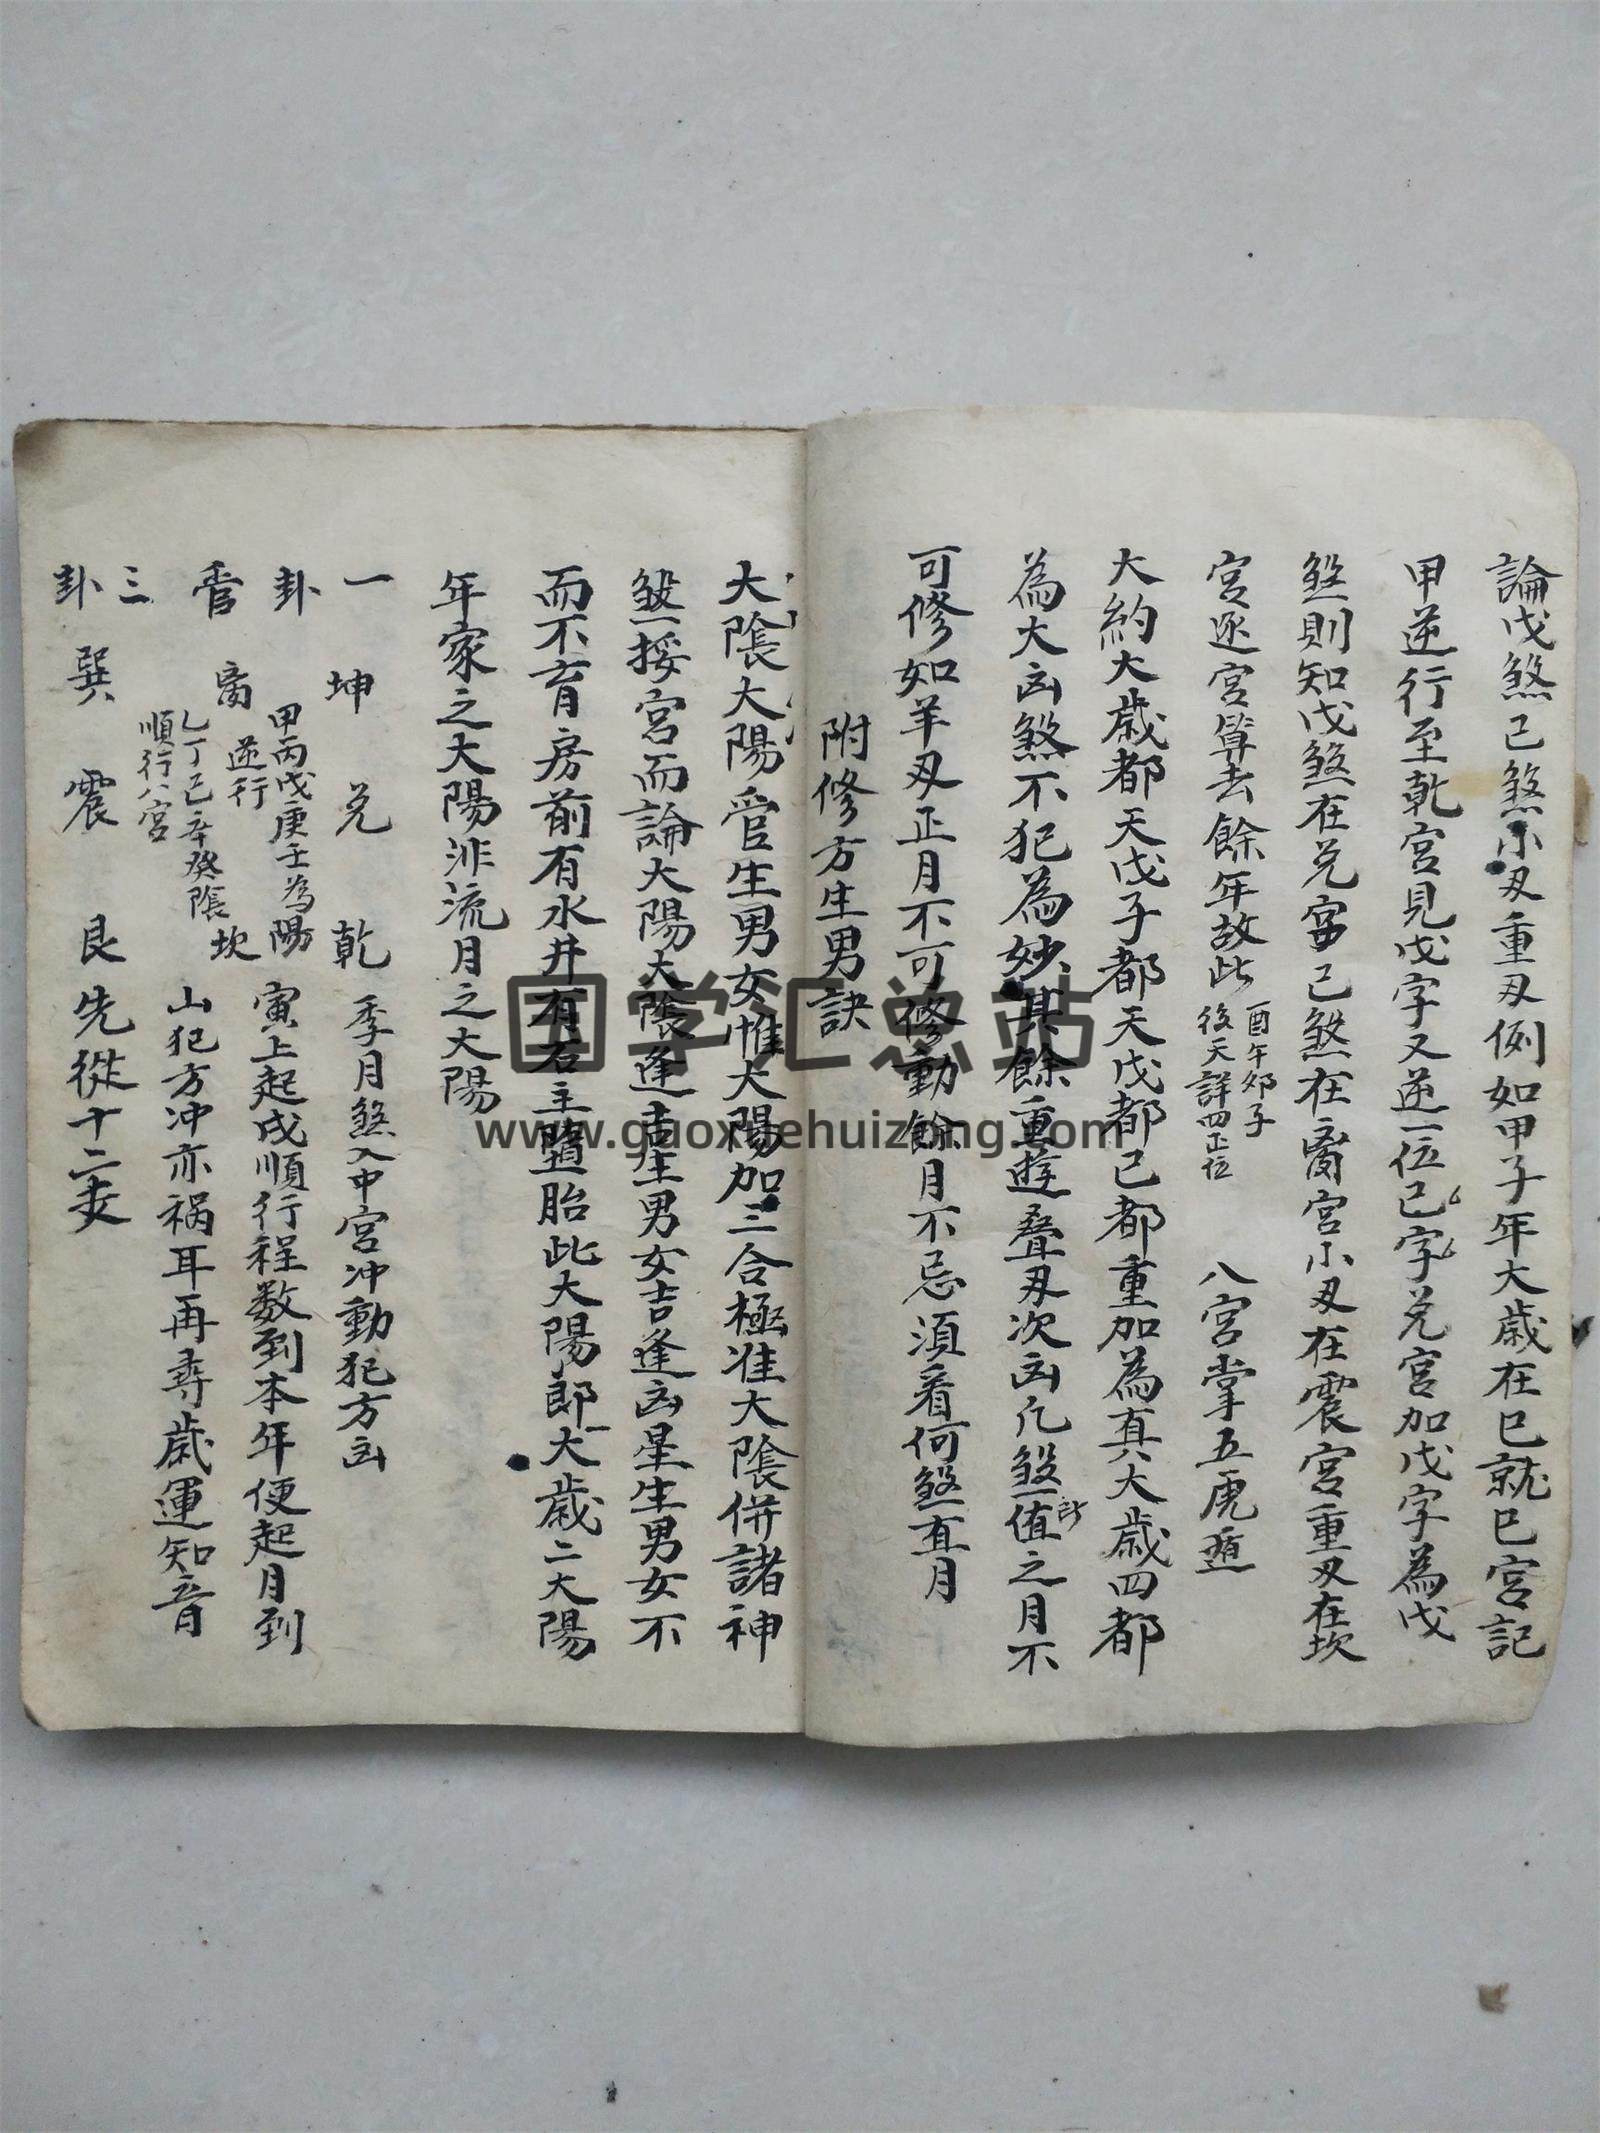 論戊煞己煞小刃重刃例如甲子年大歲在巳就巳宮記
甲逆行至乾宮見戊字又逆一位己字兌宮加戊字為戊
煞則知戊煞在兌宮己煞在离宮小刃在震宮重刃在坎
宮逐宮算去餘年故此
酉午夘子
後天詳四正位
八宮掌五虎遁
大約大歲都天戊子都天戊都己都重加為真大歲四都
為大凶煞不犯為妙其餘重遊叠刃次凶凡煞值之月不
可修如羊刃正月不可修動餘月不忌須看何煞直月
附修方生男訣
大陰大陽管生男女惟大陽加三合極准大陰併諸神
煞挨宮而論大陽大陰逢吉生男女吉逢凶星生男女不
而不育房前有水井有石主墮胎此大陽郎大歲二大陽
年家之大陽非流月之大陽
一 坤 兌 乾 季月煞入中宮冲動犯方凶
卦 甲丙戊庚壬為陽 寅上起戌順行程数到本年便起月到
逆行
管 离 坎 山犯方冲亦祸耳再尋歲運知音
乙丁己辛癸陰
順行八宮
三
卦 巽 震 艮 先從十二支
国学汇总站
www.guoxuehuizong.com